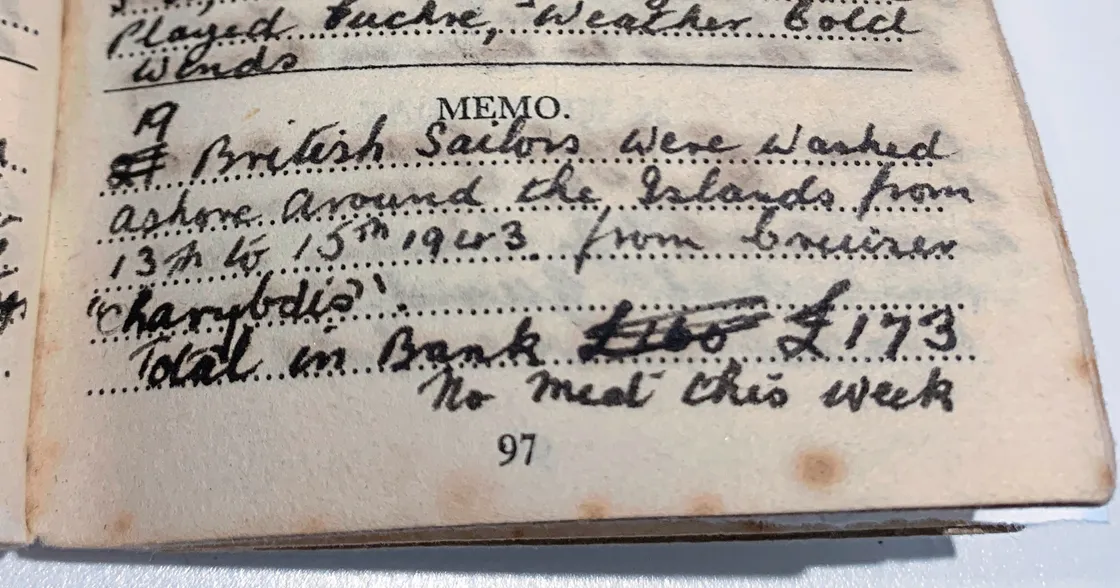 Played Euchre, Weather Cold
Winds
MEMO.
19
British Sailors were washed
ashore around the Islands from
13th to 15th 1943. from Cruiser
"Charybdis".
Total in Bank £160 £173
No Meat this week
97